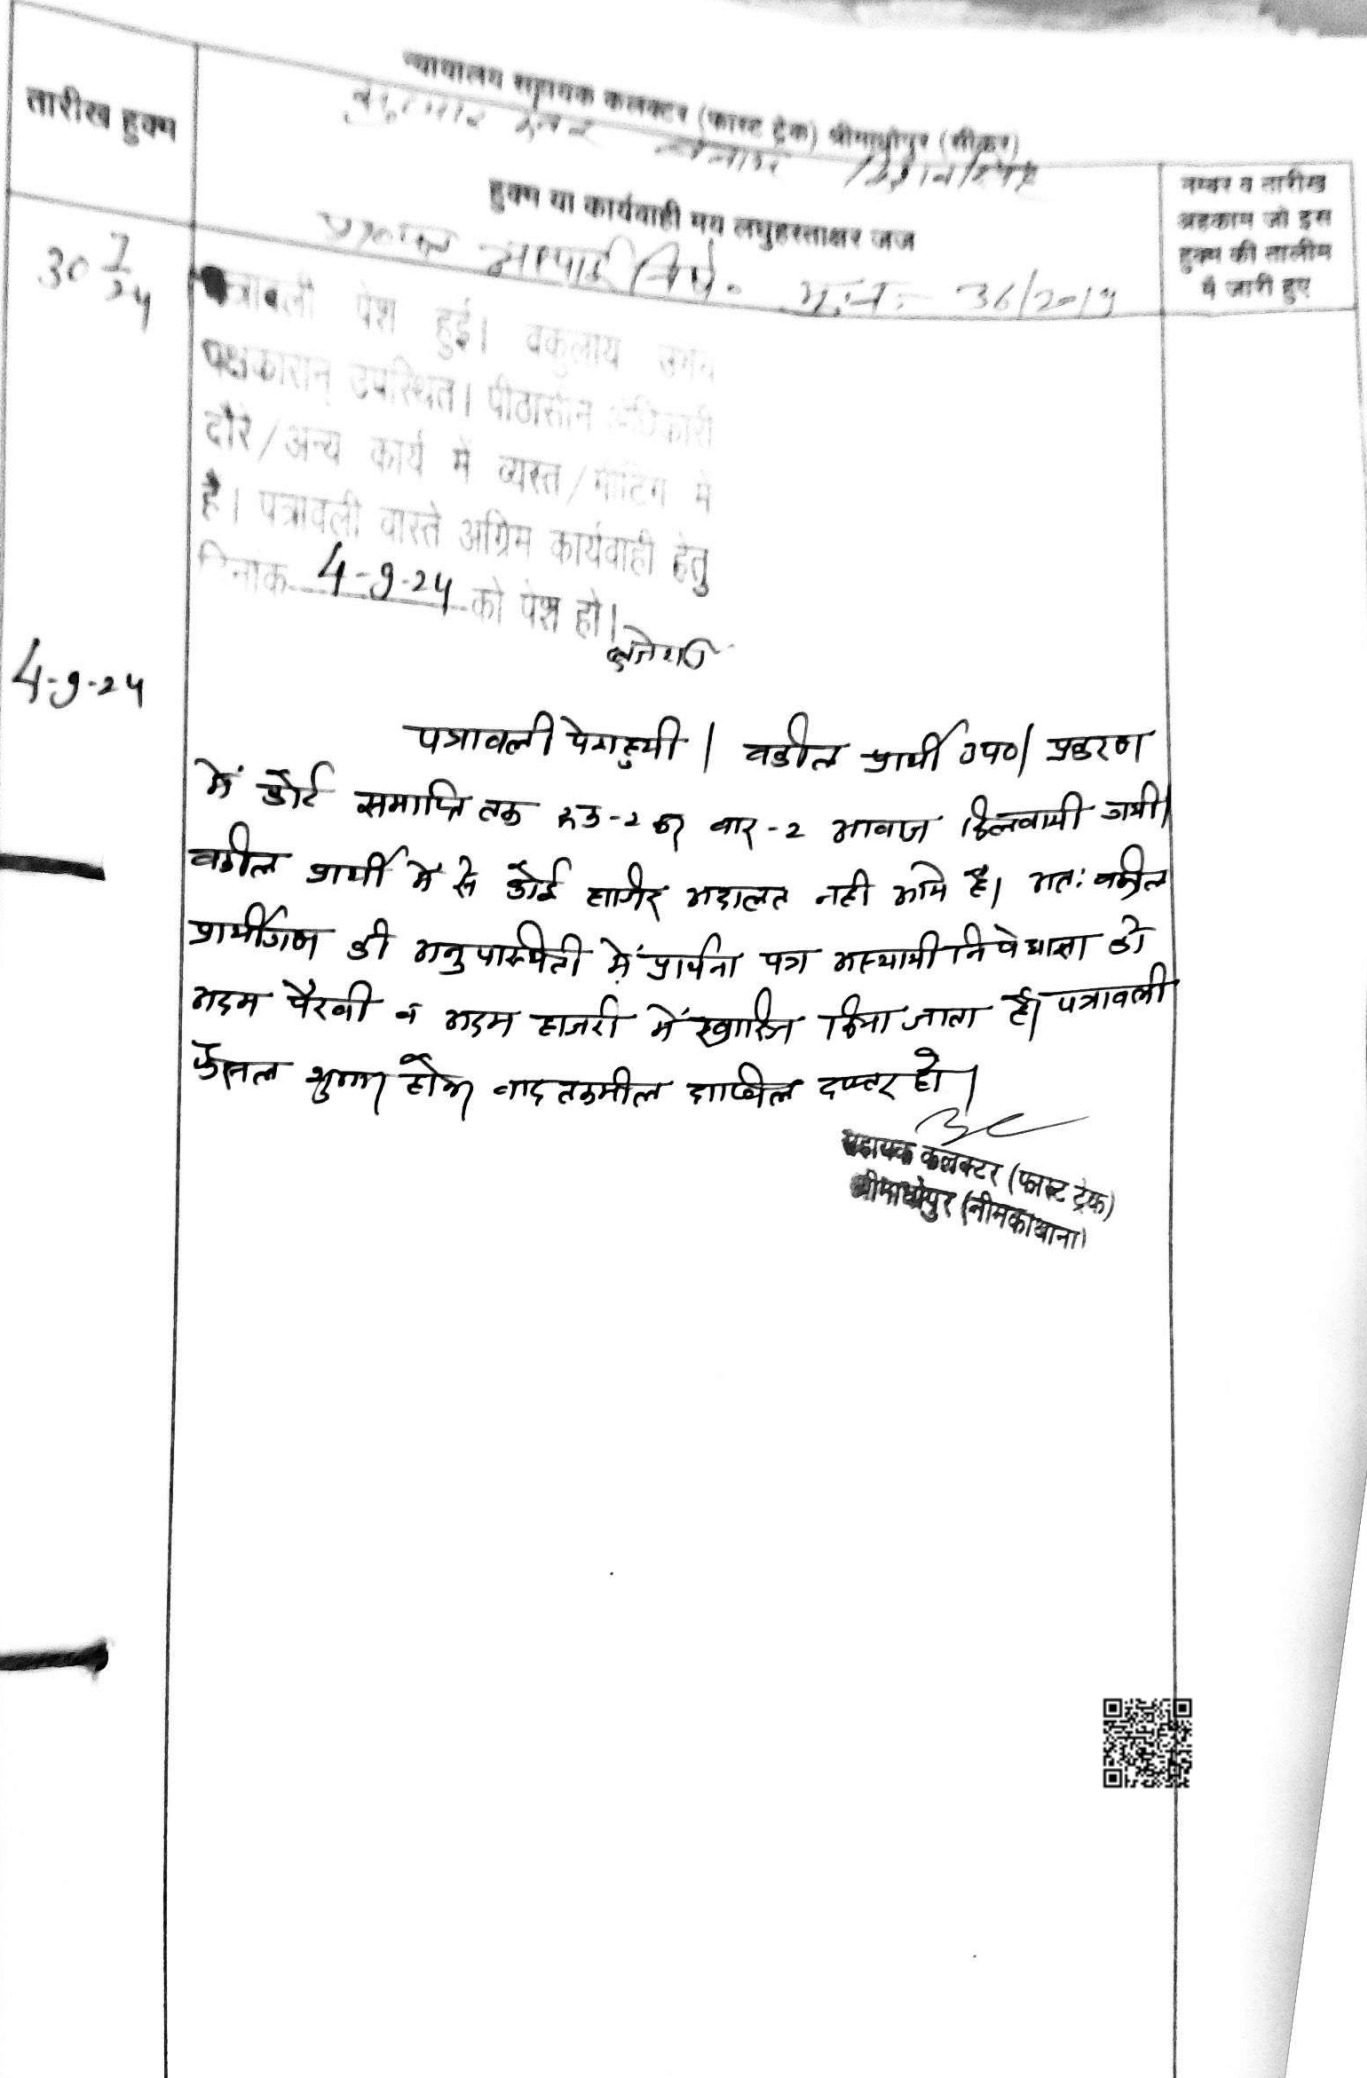 न्यायालय सहायक कलक्टर (फास्ट ट्रेक) श्रीमाधोपुर (सीकर)
तारीख हुक्म
बनाम
हुक्म या कार्यवाही मय लघुहस्ताक्षर जज
नम्बर व तारीख
अहकाम जो इस
हुक्म की तालीम
में जारी हुए
36/2019
30 7/24
पत्रावली पेश हुई। वकुलाय उभय
पक्षकारान् उपस्थित। पीठासीन अधिकारी
दौरे/अन्य कार्य में व्यस्त/मीटिंग में
है। पत्रावली वास्ते अग्रिम कार्यवाही हेतु
दिनांक 4-9-24 को पेश हो।
4-9-24
पत्रावली पेश हुयी। वकील प्रार्थी उप०। प्रकरण
में कोर्ट समाप्ति तक रूक-2 कर बार-2 आवाज दिलवायी गयी।
वकील प्रार्थी में से कोई हाजिर अदालत नही आये है। अतः वकील
प्रार्थीगण की अनुपस्थिती में प्रार्थना पत्र अस्थायी निषेधाज्ञा को
अदम पैरवी व अदम हाजरी में खारिज किया जाता है। पत्रावली
फैसल शुमार होकर बाद तकमील दाखिल दफ्तर हो।
सहायक कलक्टर (फास्ट ट्रेक)
श्रीमाधोपुर (नीमकाथाना)